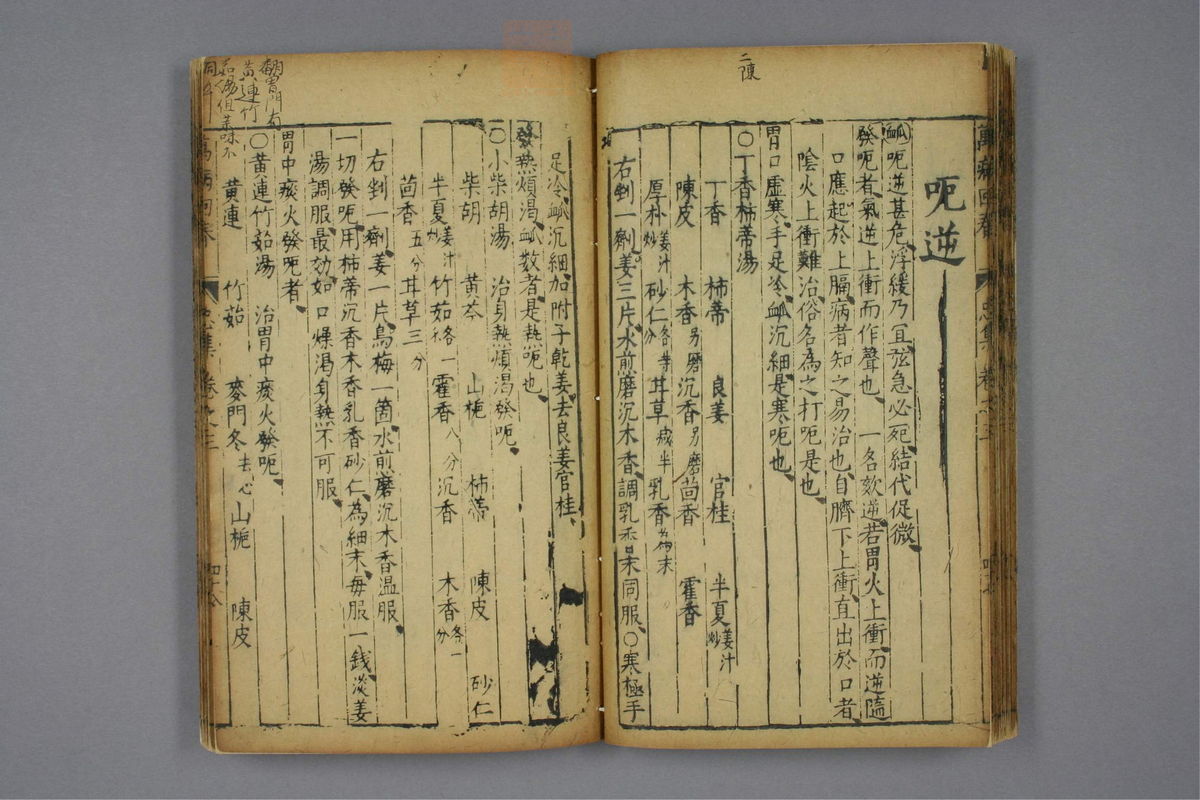 二陳
呃逆
脉呃逆甚危浮緩乃宜弦急必死結代促微
發呃者氣逆上衝而作聲也一名欬逆若胃火上衝而逆隨
口應起於上膈病者知之易治也自臍下上衝直出於口者
陰火上衝難治俗名為之打呃是也
胃口虛寒手足冷脉沉細是寒呃也
○丁香柿蒂湯
丁香 柿蒂 良姜 官桂 半夏姜汁炒
陳皮 木香另磨 沉香另磨 茴香 藿香
厚朴姜汁炒 砂仁各等分 甘草減半 乳香為細末
右剉一劑姜三片水煎磨沉木香調乳香末同服○寒極手
足冷脉沉細加附子乾姜去良姜官桂
發熱煩渴脉数者是熱呃也
○小柴胡湯 治身熱煩渴發呃
柴胡 黃芩 山梔 柿蒂 陳皮 砂仁
半夏姜汁炒 竹茹各一 藿香八分 沉香 木香各一分
茴香五分 甘草三分
右剉一劑姜一片烏梅一箇水煎磨沉木香温服
一切發呃用柿蒂沉香木香乳香砂仁為細末毎服一錢淡姜
湯調服最効如口燥渴身熱不可服
胃中痰火發呃者
○黃連竹茹湯 治胃中痰火發呃
黃連 竹茹 麥門冬去心 山梔 陳皮
翻胃門有
黃連竹
茹湯但藥味不
同
萬病回春 忠集 卷之三
萬病回春 忠集 卷之三